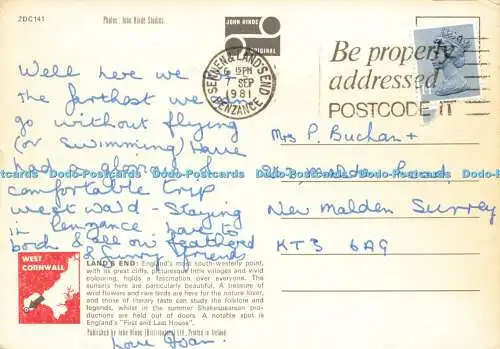 2DC141
Photos: John Hinde Studios.
JOHN HINDE
ORIGINAL
SENNEN & LAND'S END
6 15PM
7 SEP
1981
PENZANCE
Be properly
addressed
POSTCODE IT
Well here we
the farthest we can
go without flying
(or swimming) Have
had a glorious &
comfortable trip
westward - Staying
in Penzance. Love to
both & all our feathered
& furry friends
Love Joan.
Mrs P. Buchan +
Road,
New Malden Surrey
KT3 6AG
WEST
CORNWALL
LAND'S END: England's most south-westerly point,
with its great cliffs, picturesque little villages and vivid
colouring, holds a fascination over everyone. The
sunsets here are particularly beautiful. A treasure of
wild flowers and rare birds are here for the nature lover,
and those of literary taste can study the folklore and
legends, whilst in the summer Shakespearean pro-
ductions are held out of doors. A notable spot is
England's "First and Last House".
Published by John Hinde (Distributors) Ltd. Printed in Ireland
Dado-Postcards Dado-Postcards Dado-Postcards Dado-Postcards Dado-Postcards